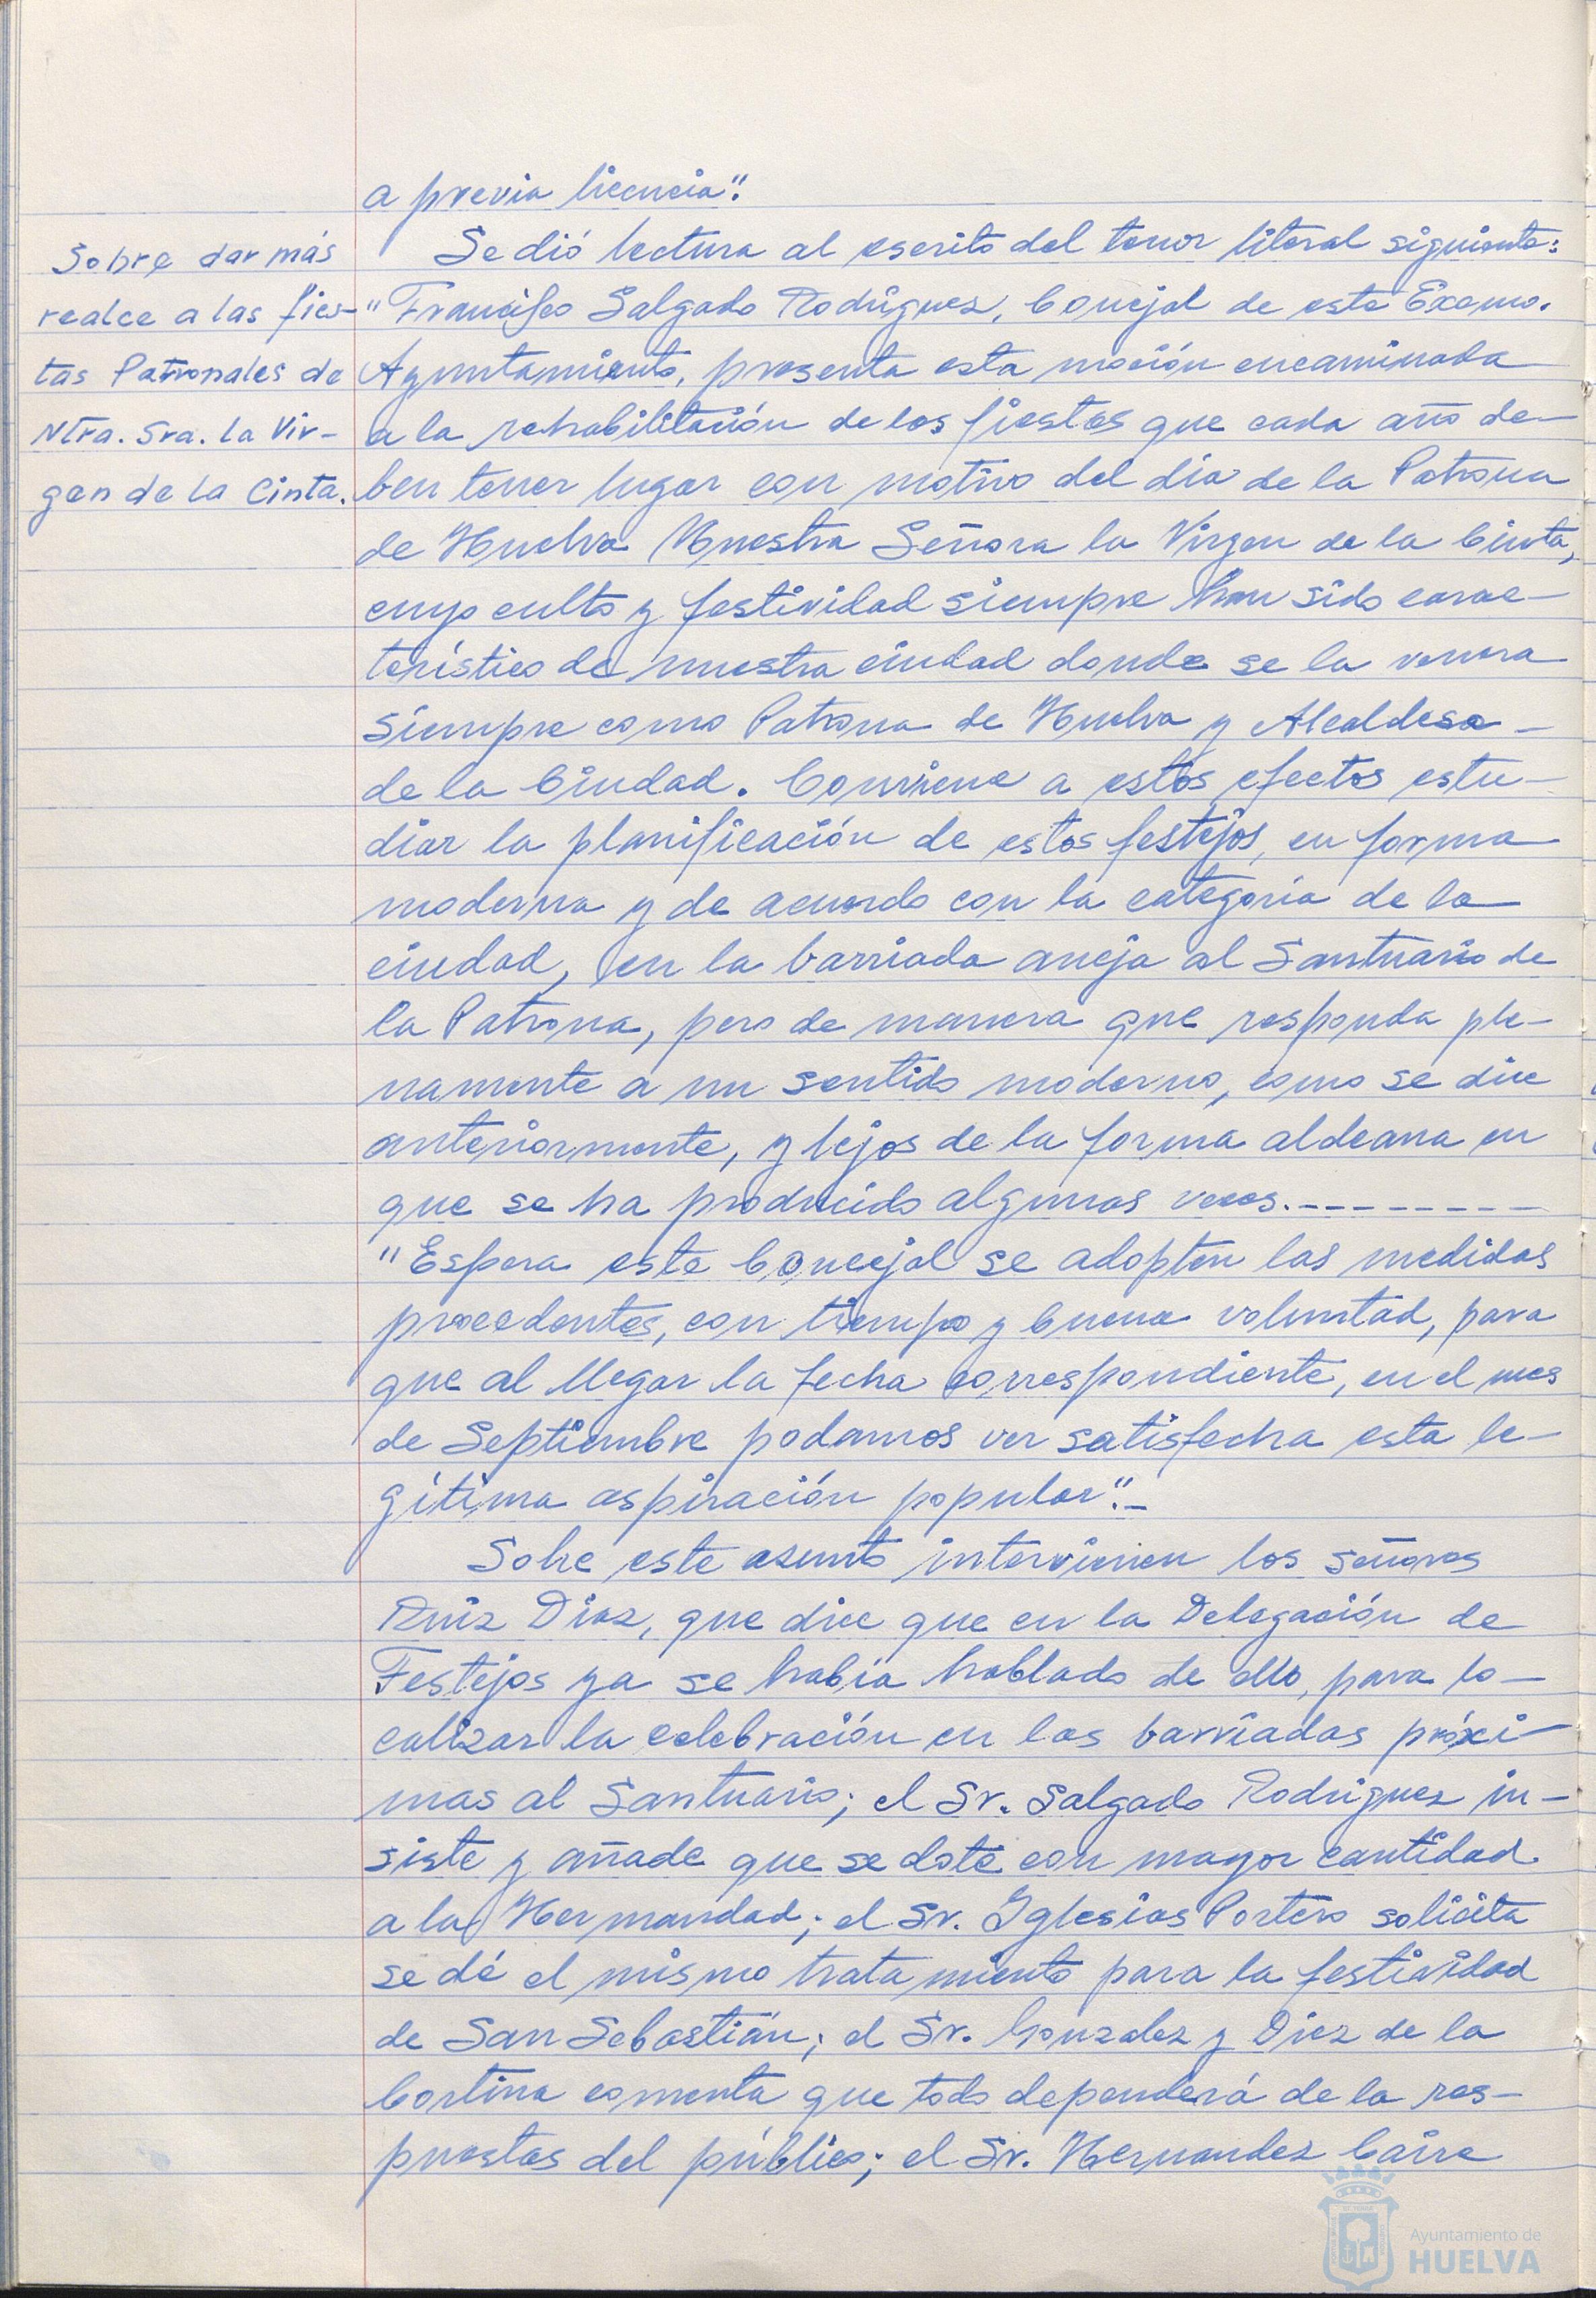 a previa licencia".
Sobre dar más
realce a las fies-
tas Patronales de
Ntra. Sra. la Vir-
gen de la Cinta.
Se dió lectura al escrito del tenor literal siguiente:
"Francisco Salgado Rodriguez, Concejal de este Excmo.
Ayuntamiento, presenta esta moción encaminada
a la rehabilitación de las fiestas que cada año de-
ben tener lugar con motivo del día de la Patrona
de Huelva Nuestra Señora la Virgen de la Cinta,
cuyo culto y festividad siempre han sido carac-
terístico de nuestra ciudad donde se la venera
siempre como Patrona de Huelva y Alcaldesa -
de la Ciudad. Conviene a estos efectos estu-
diar la planificación de estos festejos, en forma
moderna y de acuerdo con la categoría de la
ciudad, en la barriada aneja al Santuario de
la Patrona, pero de manera que responda ple-
namente a un sentido moderno, como se dice
anteriormente, y lejos de la forma aldeana en
que se ha producido algunas veces.---------
"Espera este Concejal se adopten las medidas
procedentes, con tiempo y buena voluntad, para
que al llegar la fecha correspondiente, en el mes
de Septiembre podamos ver satisfecha esta le-
gítima aspiración popular".-
Sobre este asunto intervienen los señores
Ruiz Diaz, que dice que en la Delegación de
Festejos ya se había hablado de ello, para lo-
calizar la celebración en las barriadas próxi-
mas al Santuario; el Sr. Salgado Rodriguez in-
siste y añade que se dote con mayor cantidad
a la Hermandad; el Sr. Iglesias Portero solicita
se dé el mismo tratamiento para la festividad
de San Sebastián; el Sr. Gonzalez y Diez de la
Cortina comenta que todo dependerá de la res-
puestas del público; el Sr. Hernandez Caire
Ayuntamiento de
HUELVA